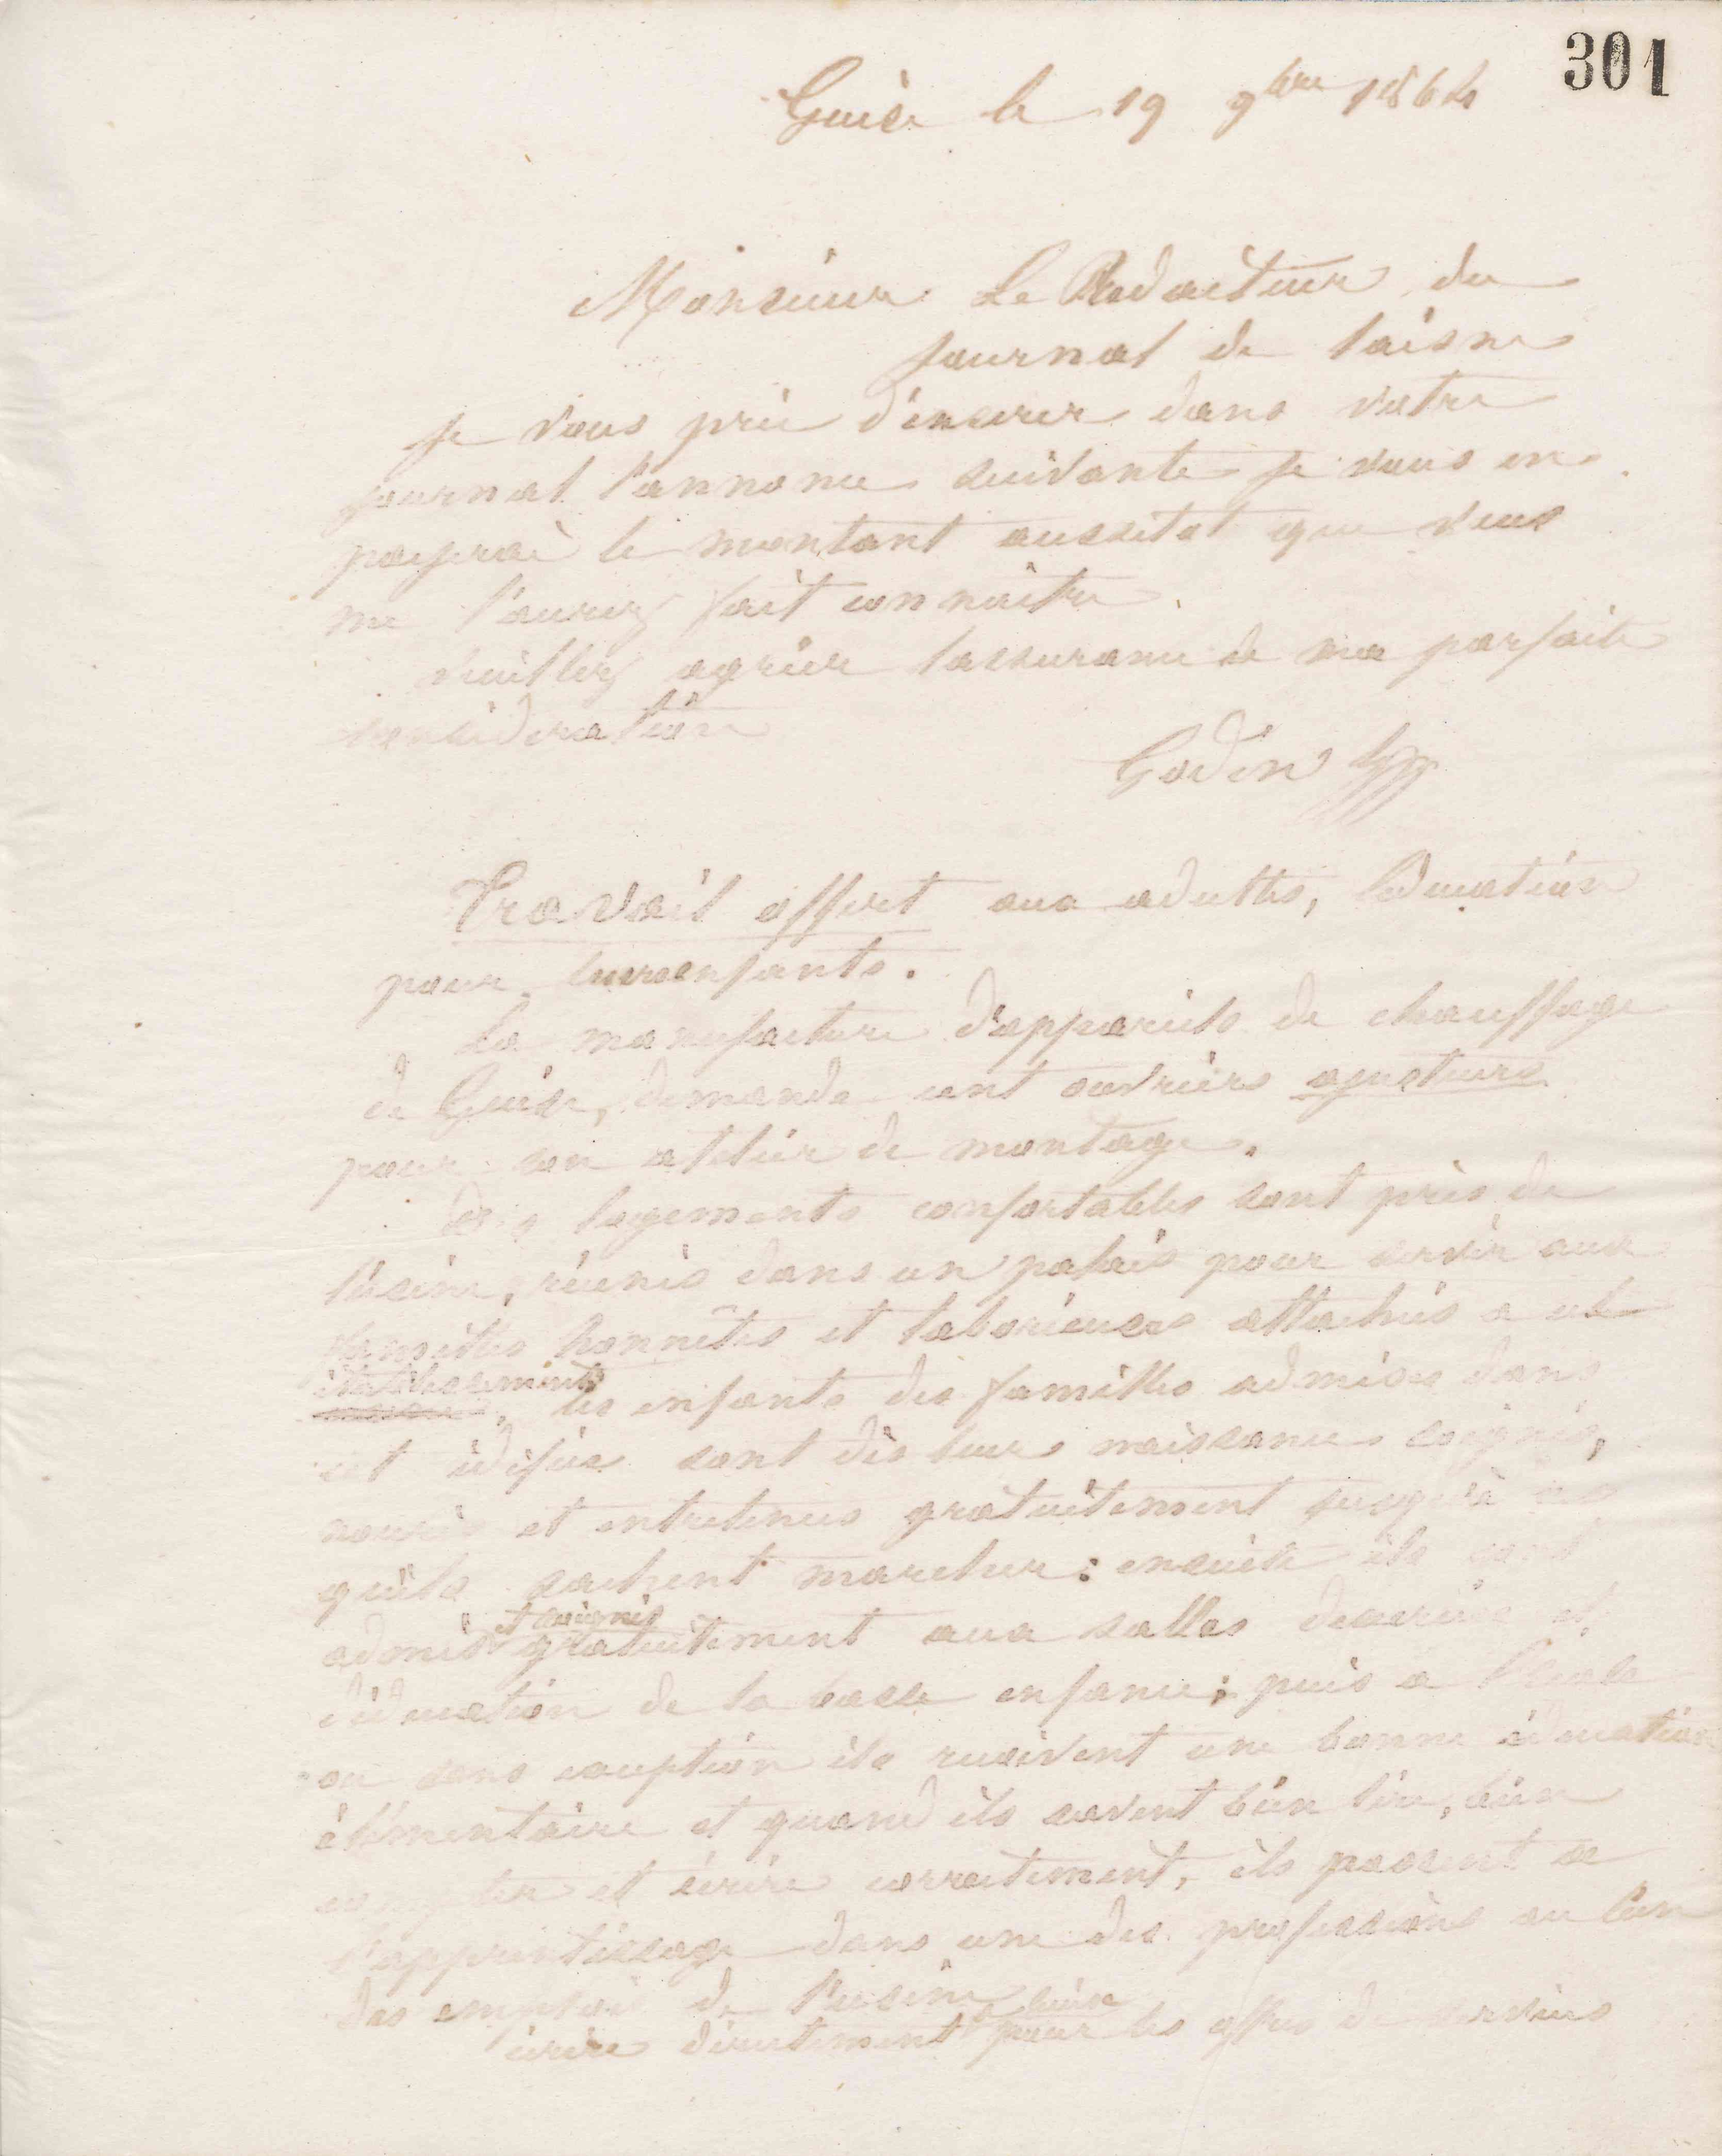 301
Guise le 19 9bre 1864
Monsieur Le Redacteur du
Journal de l'aisne
Je vous prie d'inserer dans votre
journal l'annonce suivante je vous en
payerai le montant aussitot que vous
me l'aurez fait connaitre.
Veuillez agréer lassurance de ma parfaite
consideration
Godin
Travail offert aux adultes, Education
pour leurs enfants.
La manufacture d'appareils de chauffage
de Guise, demande cent ouvriers ajusteurs
pour son atelier de montage.
des logements confortables sont près de
l'usine, réunis dans un palais pour servir aux
familles honnêtes et laborieuses attachés a cet
établissement, les enfants des familles admises dans
cet édifice sont dès leurs naissances soignés,
nouris et entretenus gratuitement jusqu'à ce
qu'ils sachent marcher : ensuite ils sont
et soignés
admis gratuitement aux salles d'exercice et
d'éducation de la basse enfance ; puis a l'école
ou sans exception ils recoivent une bonne éducation
élémentaire et quand ils savent bien lire, bien
compter et écrire correctement, ils passent a
l'apprentissage dans une des professions ou l'un
des emplois de l'usine
a Guise
écrire directement pour les offres de services